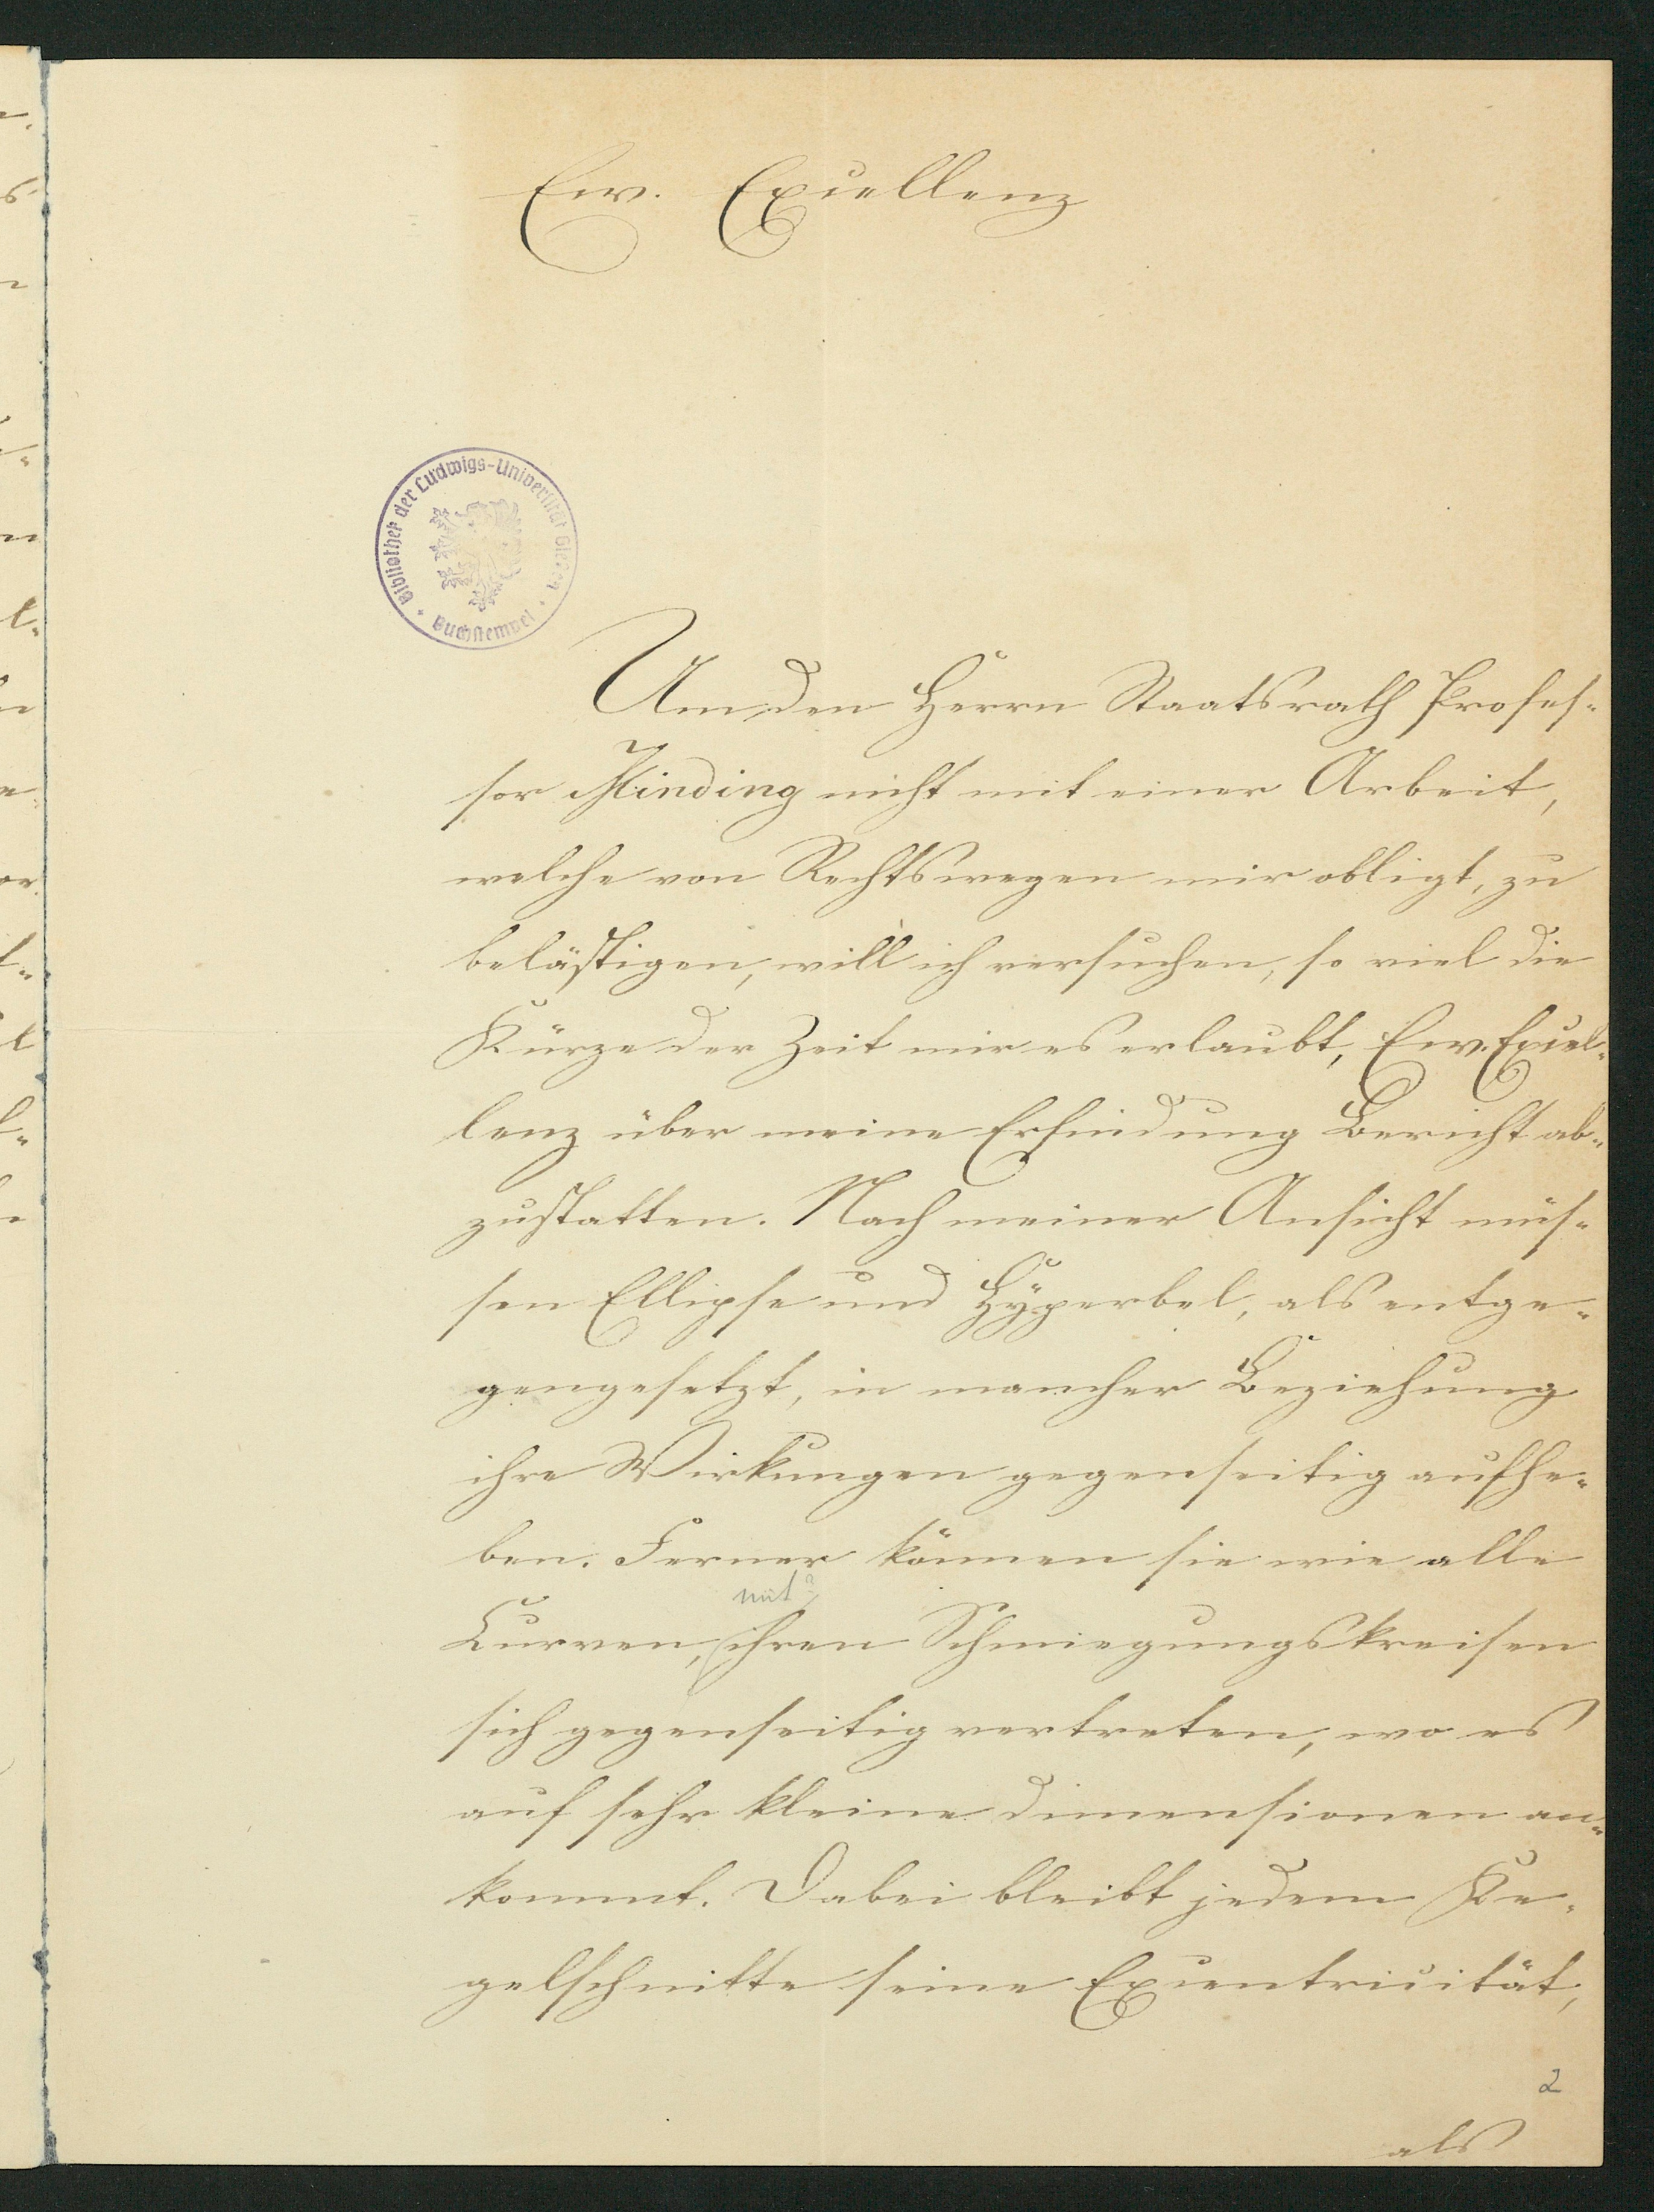 Ew. Excellenz
Bibliothek der Ludwigs-Universität Giessen
Buchstempel
Um den Herrn Staatsrath Profes-
sor Minding nicht mit einer Arbeit,
welche von Rechtswegen mir obligt, zu
belästigen, will ich versuchen, so viel die
Kürze der Zeit mir es erlaubt, Ew. Excel-
lenz über meine Erfindung Bericht ab-
zustatten. Nach meiner Ansicht müs-
sen Ellipse und Hÿperbel, als entge-
gengesetzt, in mancher Beziehung
ihre Wirkungen gegenseitig aufhe-
ben. Ferner können sie wie alle
mit?
Curven, ihren Schmiegungskreisen
sich gegenseitig vertreten, wo es
auf sehr kleine dimensionen an-
kommt. Dabei bleibt jedem Ke-
gelschnitte seine Excentricität,
2
als